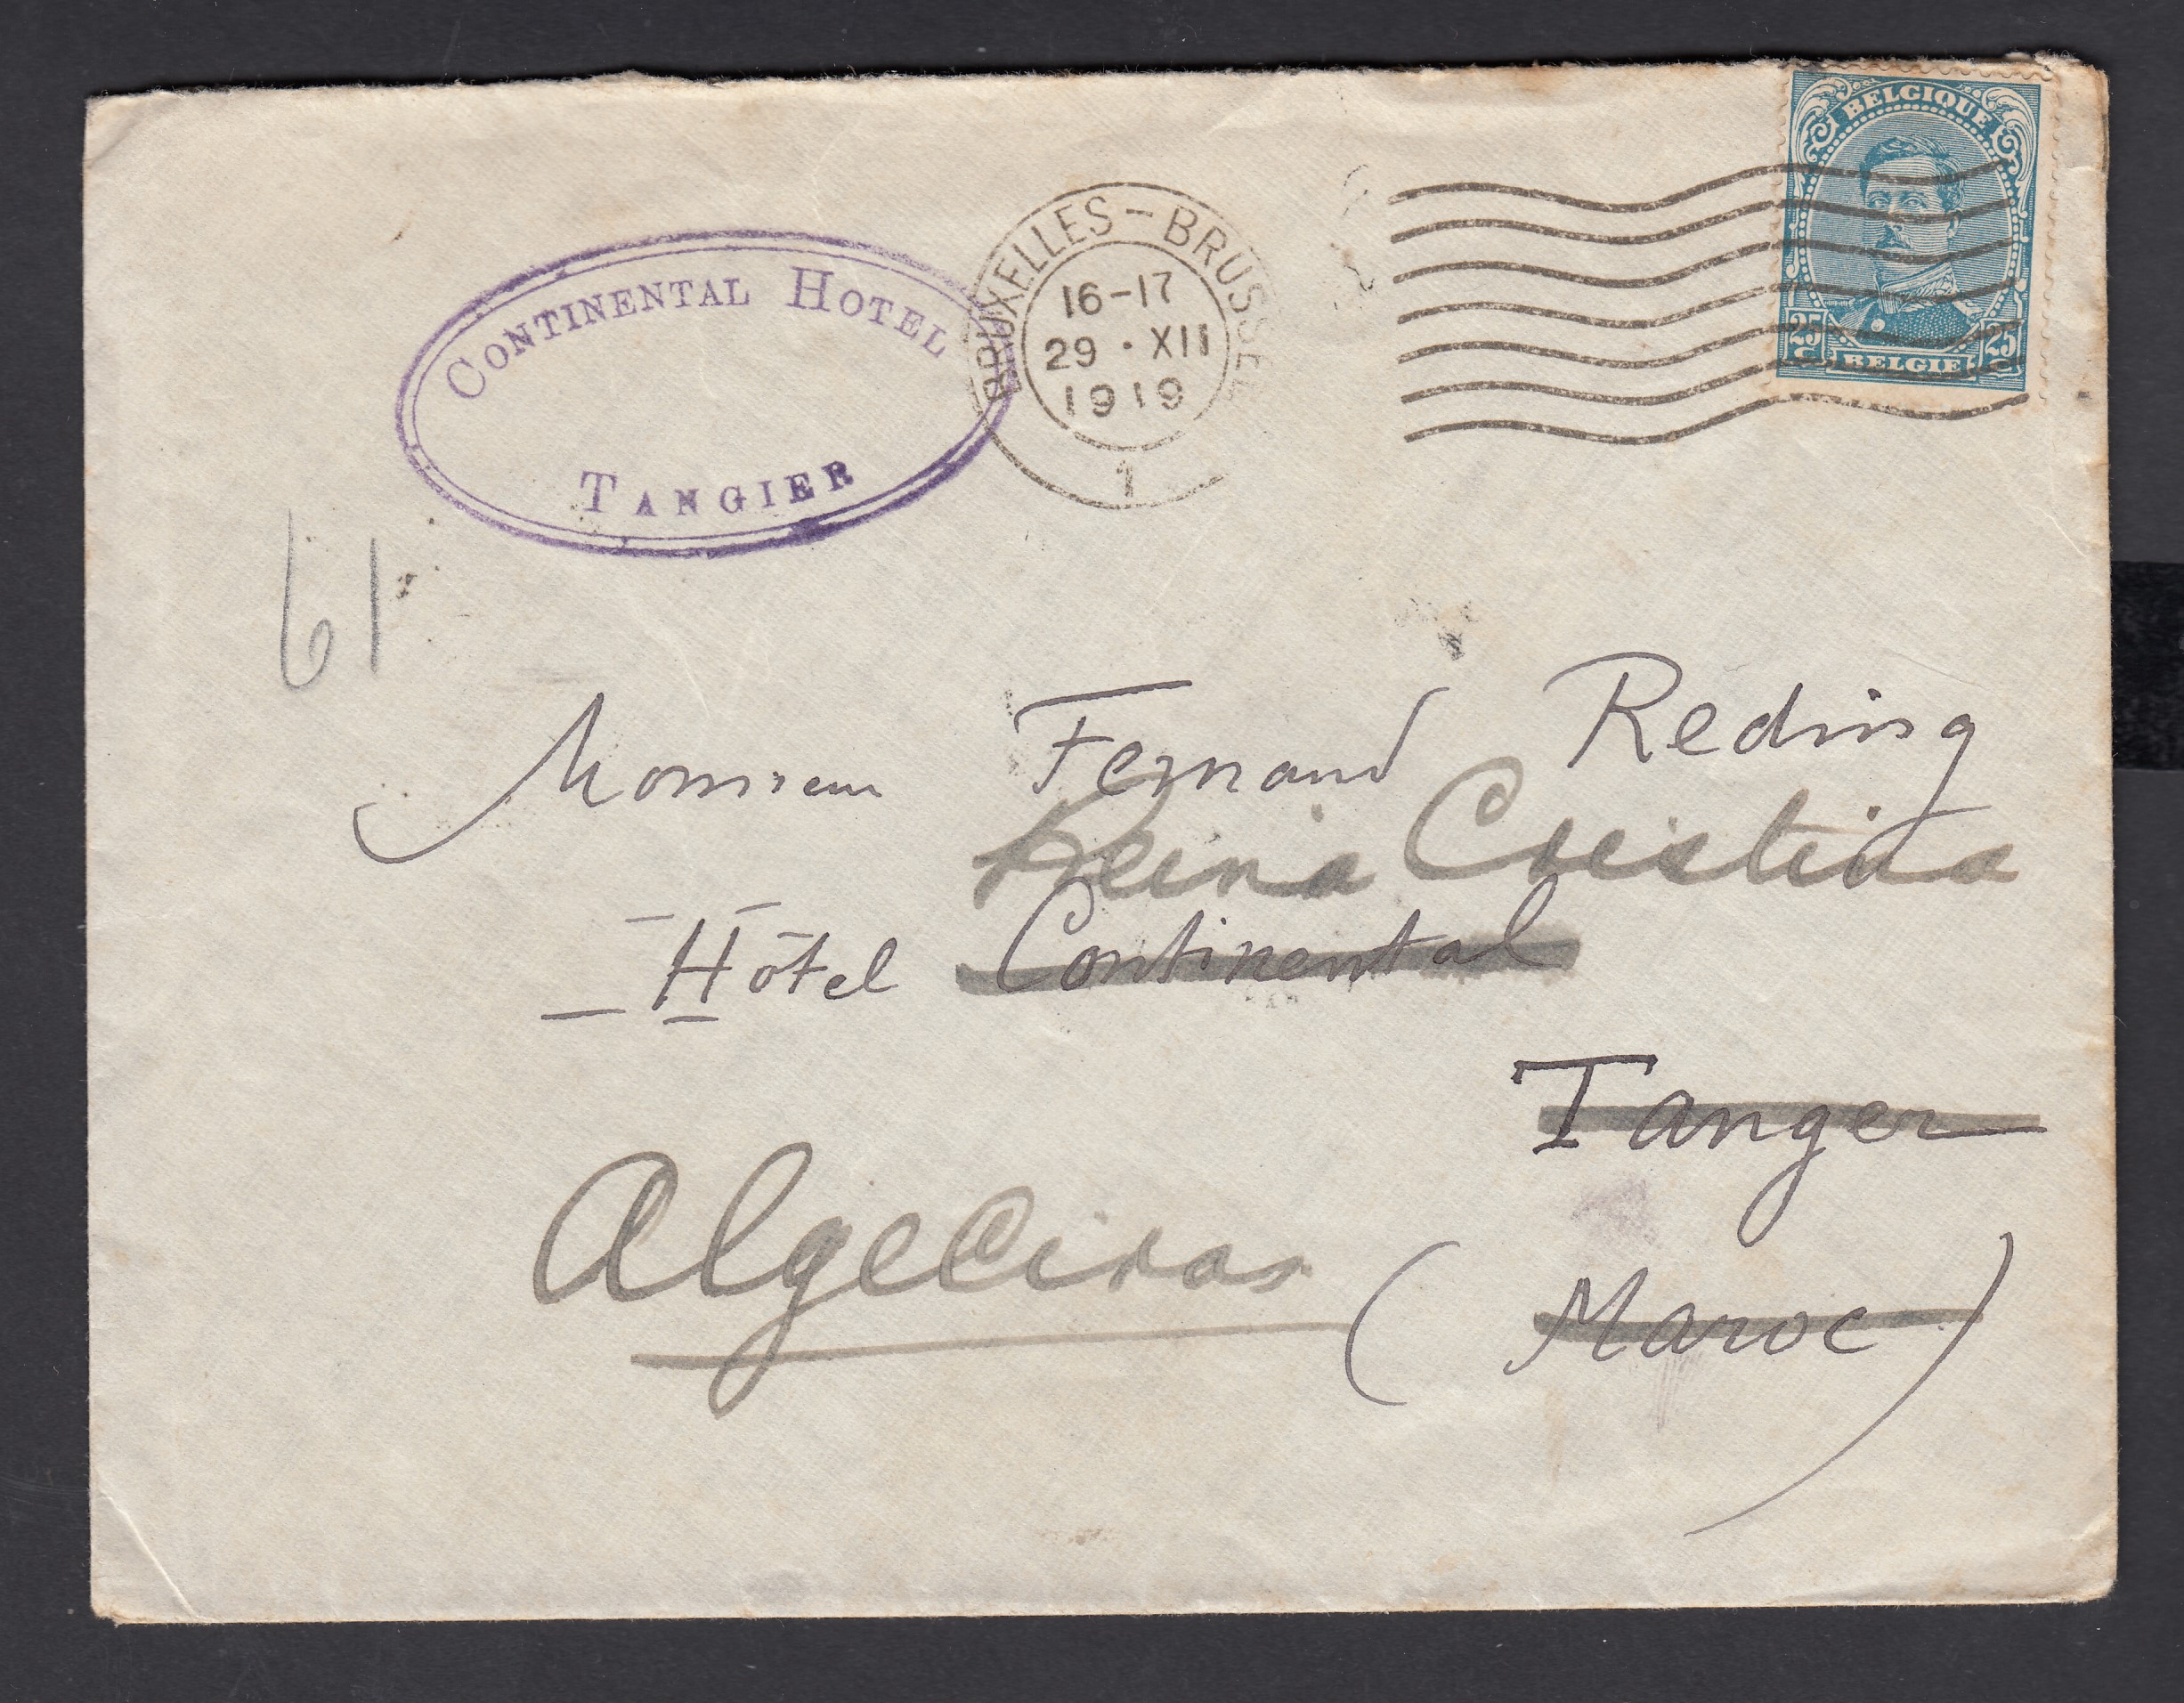 BELGIQUE
25 c BELGIE 25 c
BRUXELLES-BRUSSEL
16-17
29·XII
1919
1
CONTINENTAL HOTEL
TANGIER
61
Monsieur Fernand Reding
Reina Cristina
Hôtel Continental
Tanger
Algeciras
(Maroc)